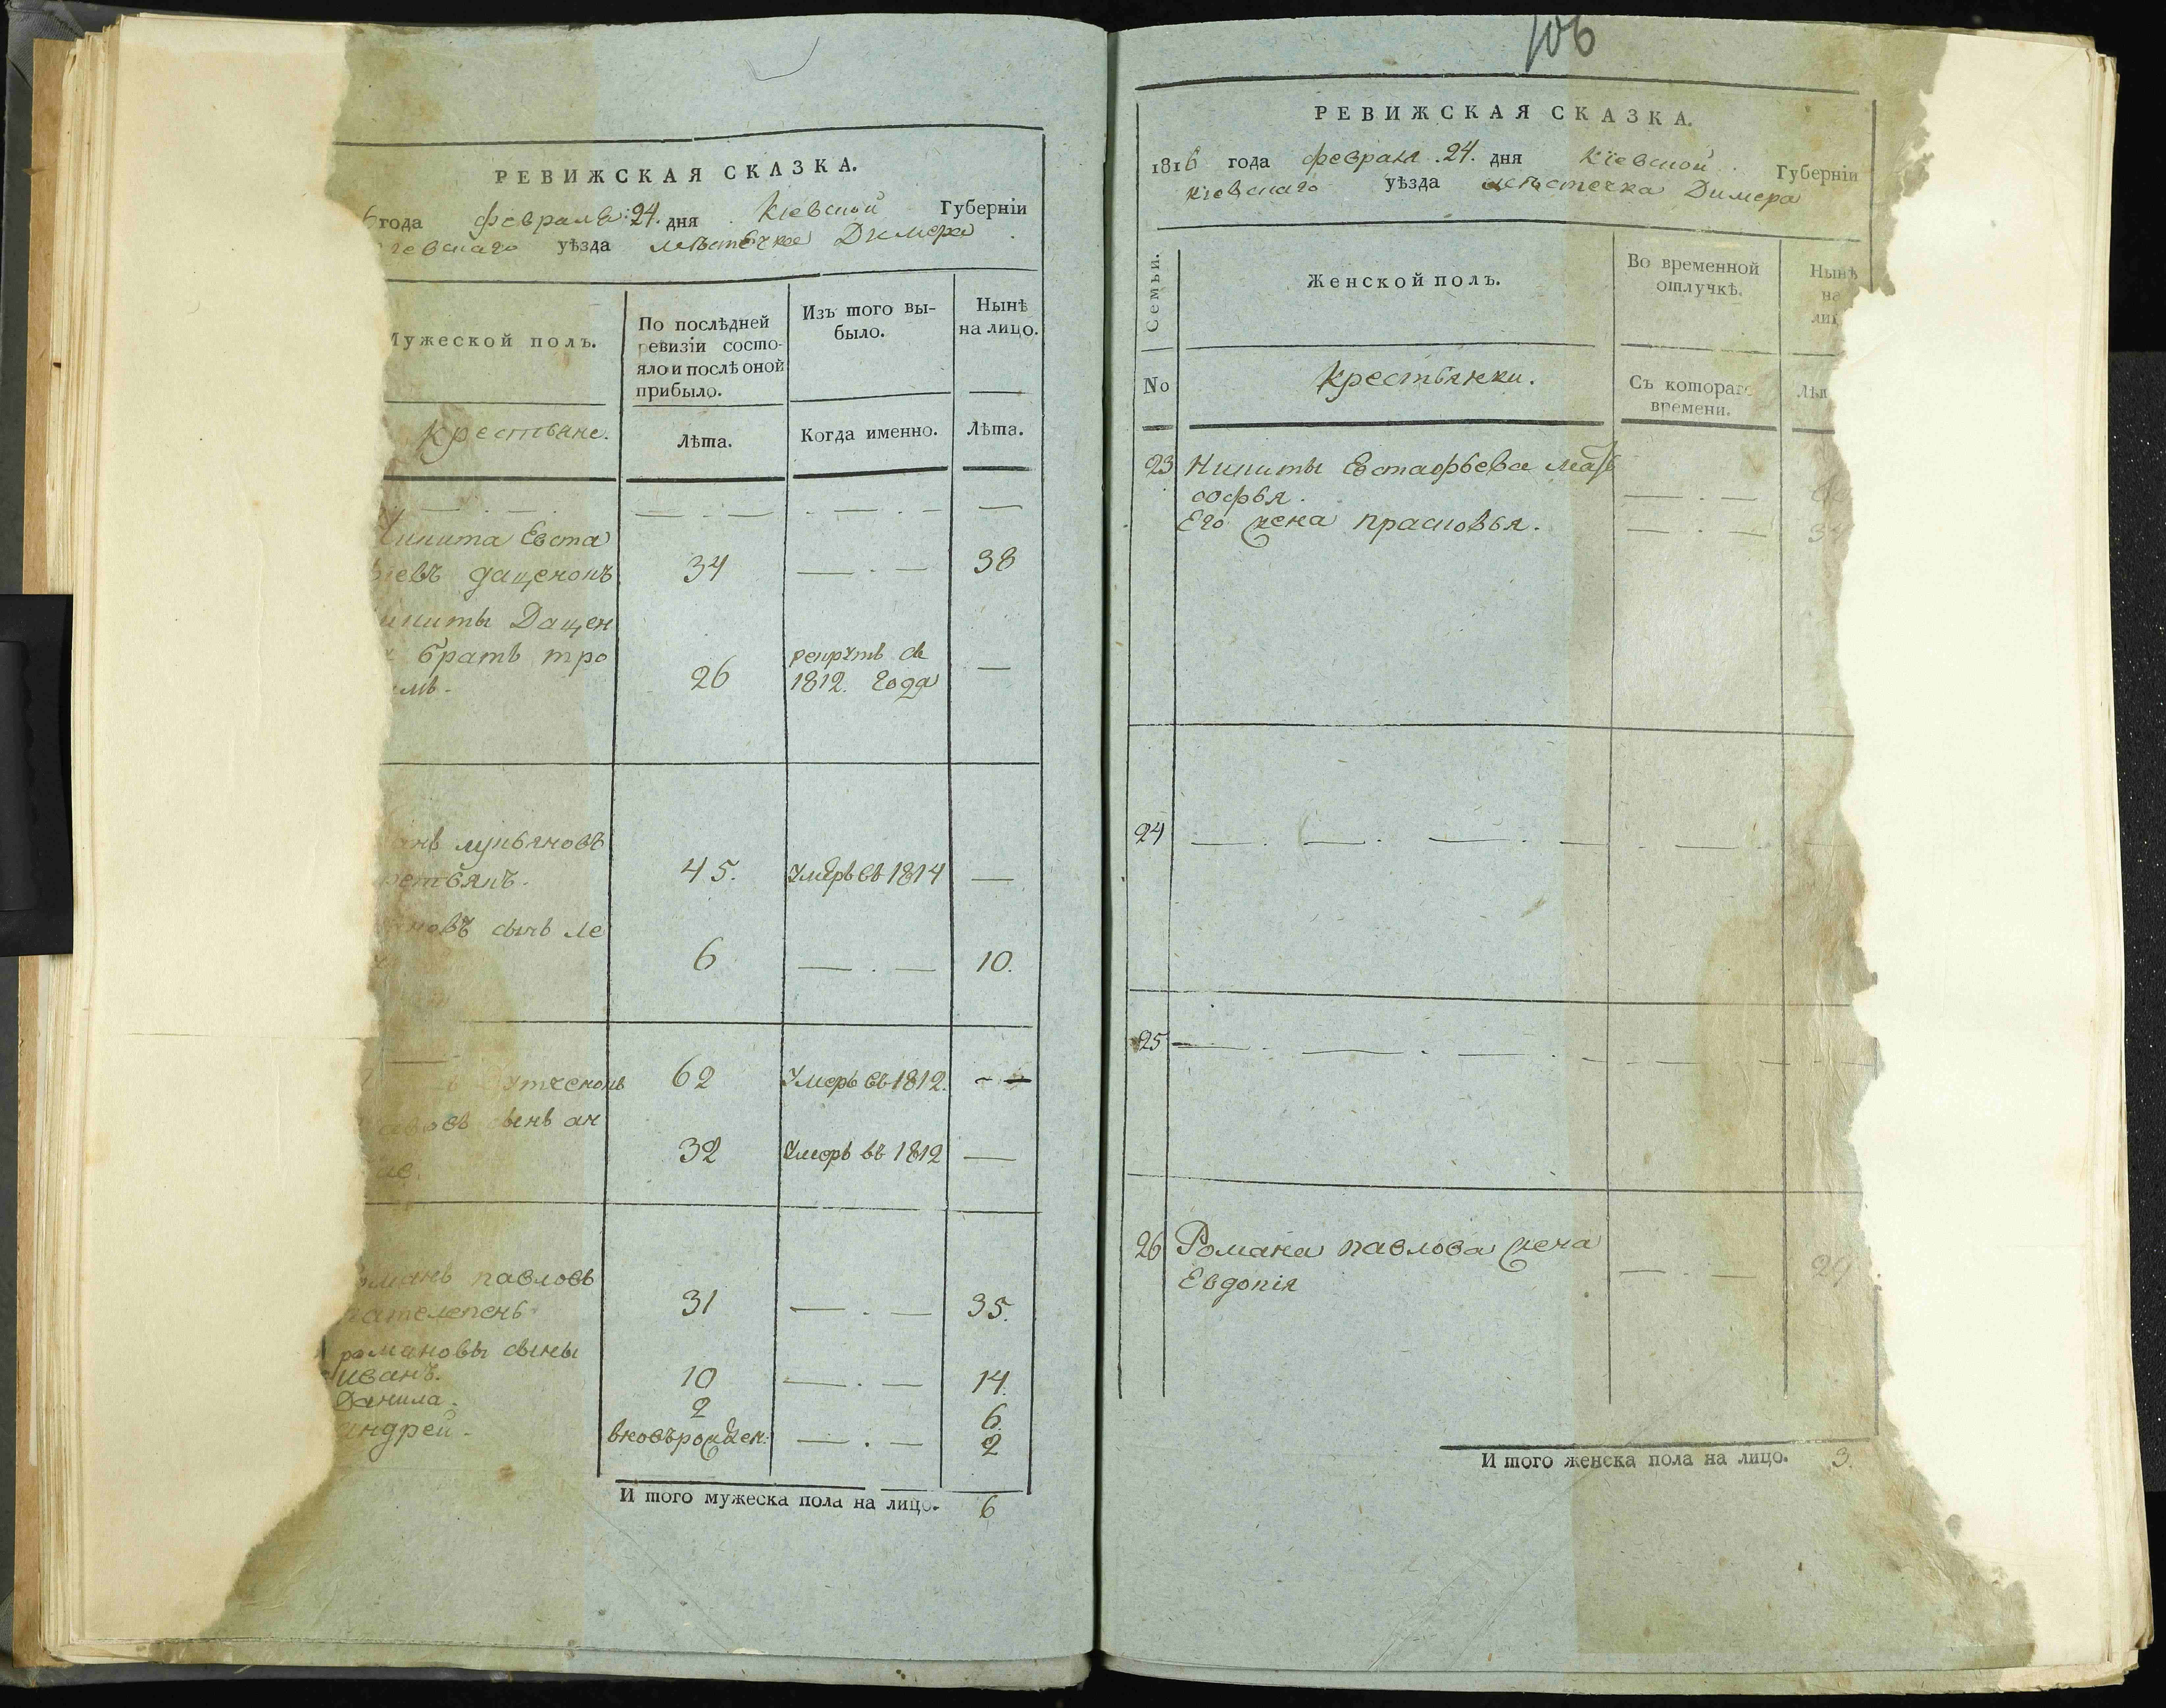 РЕВИЖСКАЯ СКАЗКА.
года февраля 24. дня Кіевской Губерніи
уѣзда мѣстечка Димера
Мужеской полъ.
По послѣдней ревизіи состояло и послѣ оной прибыло.
Изъ того выбыло.
Нынѣ на лицо.
крестьяне.
Лѣта.
Когда именно.
Лѣта.
Никита Евста
ѳіевъ даценокъ 34 — . — 38
Никиты Дацен
братъ тро
26 рекрутъ въ 1812. года —
лукьяновъ
45. умеръ въ 1814 —
сынъ ле
6 — . — 10.
62 Умеръ въ 1812. —
сынъ ан
32 Умеръ въ 1812 —
Романъ павловъ
31 — . — 35.
романовы сыны
иванъ. 10 — . — 14.
Данила. 2 6.
андрей. вновьрожден: — . — 2
И того мужеска пола на лицо. 6
106
РЕВИЖСКАЯ СКАЗКА.
1816 года февраля 24. дня Кіевской Губерніи
кіевскаго уѣзда мѣстечка Димера
Семьи.
Женской полъ.
Во временной отлучкѣ.
Нынѣ на
No
крестьянки.
Съ котораго времени.
23 Никиты Евстафьева мать
софья. — . —
Его жена прасковья. — . —
24 — . — . — . — . —
25 — . — . — . — . —
26 Романа павлова жена
Евдокія — . — 29
И того женска пола на лицо. 3.